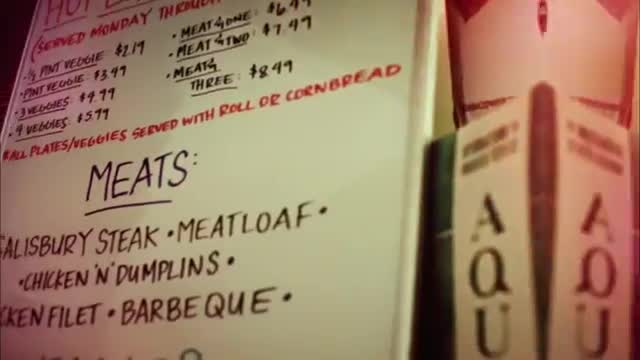 (SERVED MONDAY THROUGH
½ PINT VEGGIE: $2.19
PINT VEGGIE: $3.49
3 VEGGIES: $4.99
4 VEGGIES: $5.99
MEAT & ONE: $6.49
MEAT & TWO: $7.49
MEAT & THREE: $8.49
*ALL PLATES/VEGGIES SERVED WITH ROLL OR CORNBREAD
MEATS:
SALISBURY STEAK • MEATLOAF •
• CHICKEN 'N' DUMPLINS •
CKEN FILET • BARBEQUE •
AQU
AQU